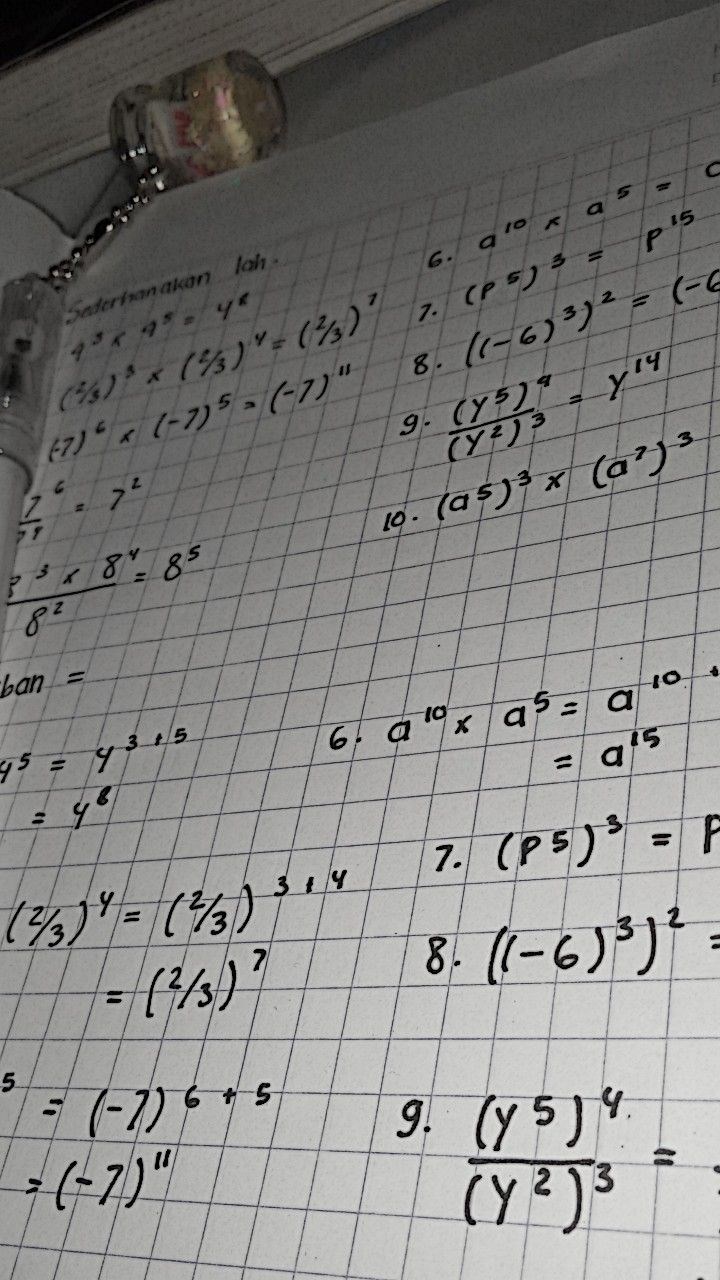 Sederhanakan lah.
4³ × 4⁵ = 4⁸
(2/3)³ × (2/3)⁴ = (2/3)⁷
(-7)⁶ × (-7)⁵ = (-7)¹¹
7⁶ / 7⁴ = 7²
8³ × 8⁴ / 8² = 8⁵
6. a¹⁰ × a⁵ =
7. (P⁵)³ = P¹⁵
8. ((-6)³)² = (-6
9. (Y⁵)⁴ / (Y²)³ = Y¹⁴
10. (a⁵)³ × (a⁷)³
ban =
4⁵ = 4³⁺⁵
= 4⁸
(2/3)⁴ = (2/3)³⁺⁴
= (2/3)⁷
⁵ = (-7)⁶⁺⁵
= (-7)¹¹
6. a¹⁰ × a⁵ = a¹⁰ ⁺
= a¹⁵
7. (P⁵)³ = P
8. ((-6)³)² =
9. (Y⁵)⁴ / (Y²)³ =